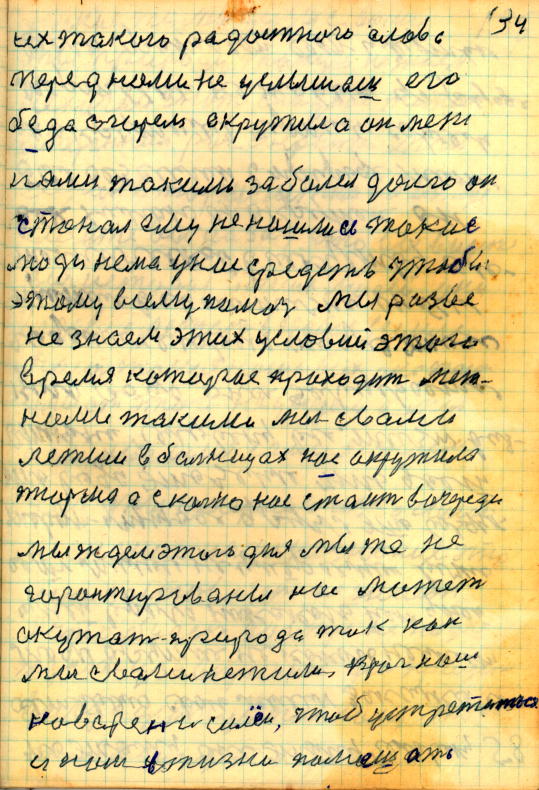 134
их такого радостного слова
перед нами не услышащ его
беда сгорем окружила он меш
нами такими заболел долго он
стонал ему не нашлись такие
люди нема у нас средств чтобы
этому всему помоч мы разве
не знаем этих условий этого
время которое проходит меж-
нами такими мы свами
лежим в болницах нас окружила
тюрма а сколко нас стаит вочереди
мы ждем этого дня мы же не
горонтированы нас может
окутат природа так как
мы свами нежили враг наш
на встречи силён, чтоб устретиться
и нам в жизни помощать